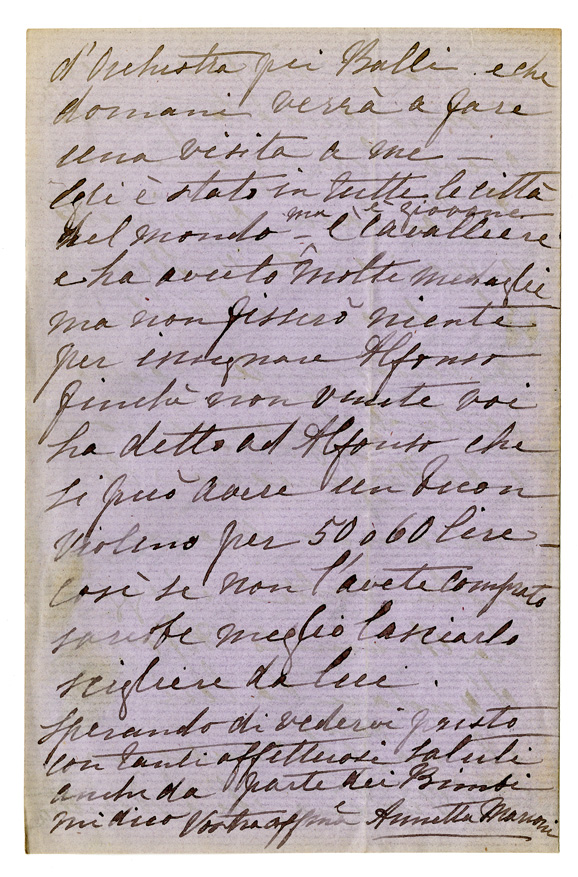 d'Orchestra pei Balli. e che
domani verrà a fare
una visita a me —
Egli è stato in tutte le città
del mondo – ma è giovane è Cavalliere
e ha avuto molte medaglie
ma non fisserò niente
per insegnare Alfonso
finchè non venite voi
ha detto ad Alfonso che
si può avere un buon
violino per 50 o 60 lire –
così se non l'avete comprato
sarebbe meglio lasciarlo
scigliere da lui.
Sperando di vedervi presto
con tanti affettuosi saluti
anche da parte dei Bimbi
mi dico Vostra affma Annetta Marconi